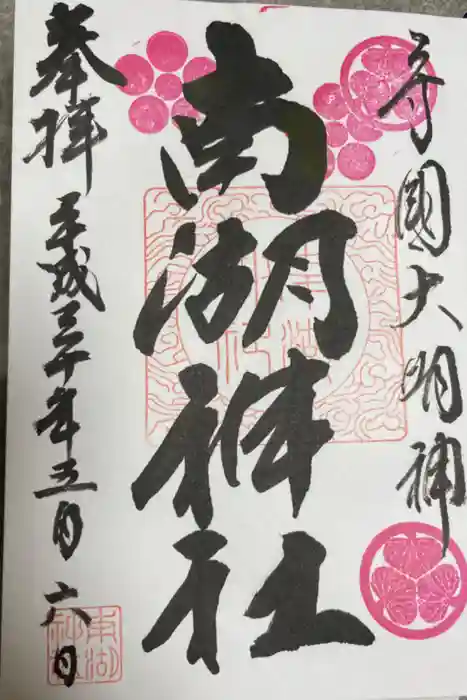 守國大明神
南湖神社
奉拝
平成三十年五月六日
南湖神社